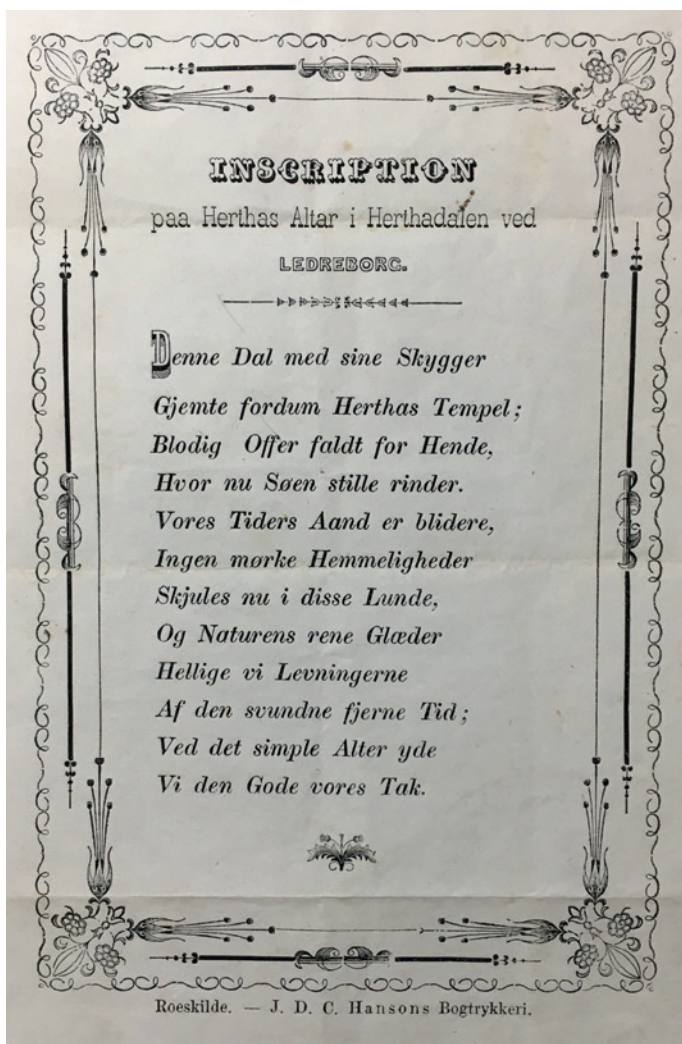 INSCRIPTION
paa Herthas Altar i Herthadalen ved
LEDREBORG.
Denne Dal med sine Skygger
Gjemte fordum Herthas Tempel;
Blodig Offer faldt for Hende,
Hvor nu Søen stille rinder.
Vores Tiders Aand er blidere,
Ingen mørke Hemmeligheder
Skjules nu i disse Lunde,
Og Naturens rene Glæder
Hellige vi Levningerne
Af den svundne fjerne Tid;
Ved det simple Alter yde
Vi den Gode vores Tak.
Roeskilde. — J. D. C. Hansons Bogtrykkeri.